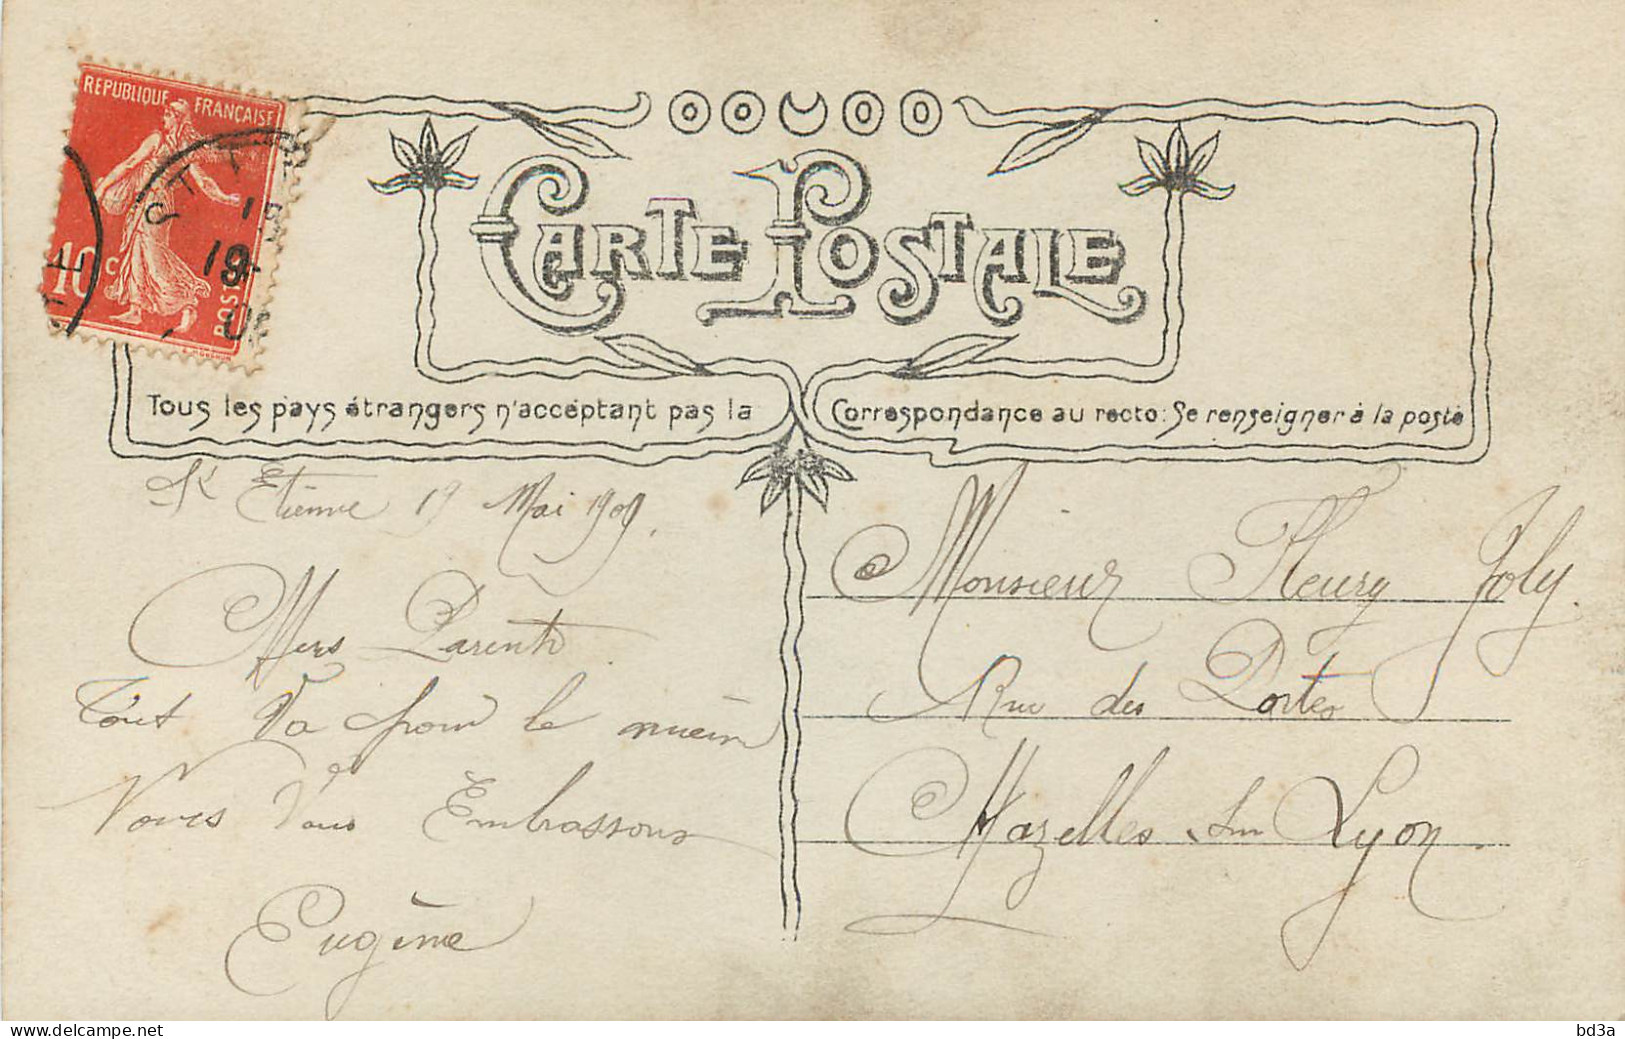 REPUBLIQUE FRANÇAISE
10 c
POSTES
19
CARTE POSTALE
Tous les pays étrangers n'acceptant pas la Correspondance au recto: Se renseigner à la poste
St Etienne 19 Mai 1909.
Chers Parents
Tout Va pour le mieux
Nous Vous Embrassons
Eugène
Monsieur Fleury Joly.
Rue des Portes
Chazelles sur Lyon.
bd3a